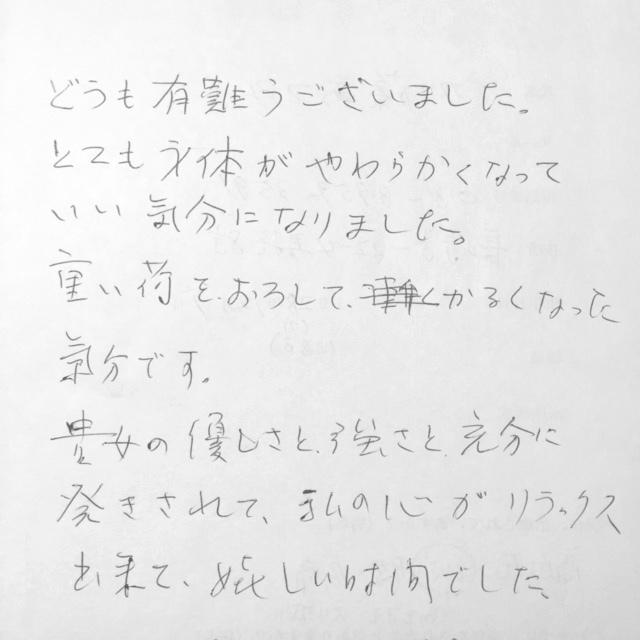 どうも有難うございました。
とても身体がやわらかくなって
いい気分になりました。
重い荷をおろして、かるくなった
気分です。
貴女の優しさと、強さと、充分に
発きされて、私の心がリラックス
出来て、嬉しい時間でした、